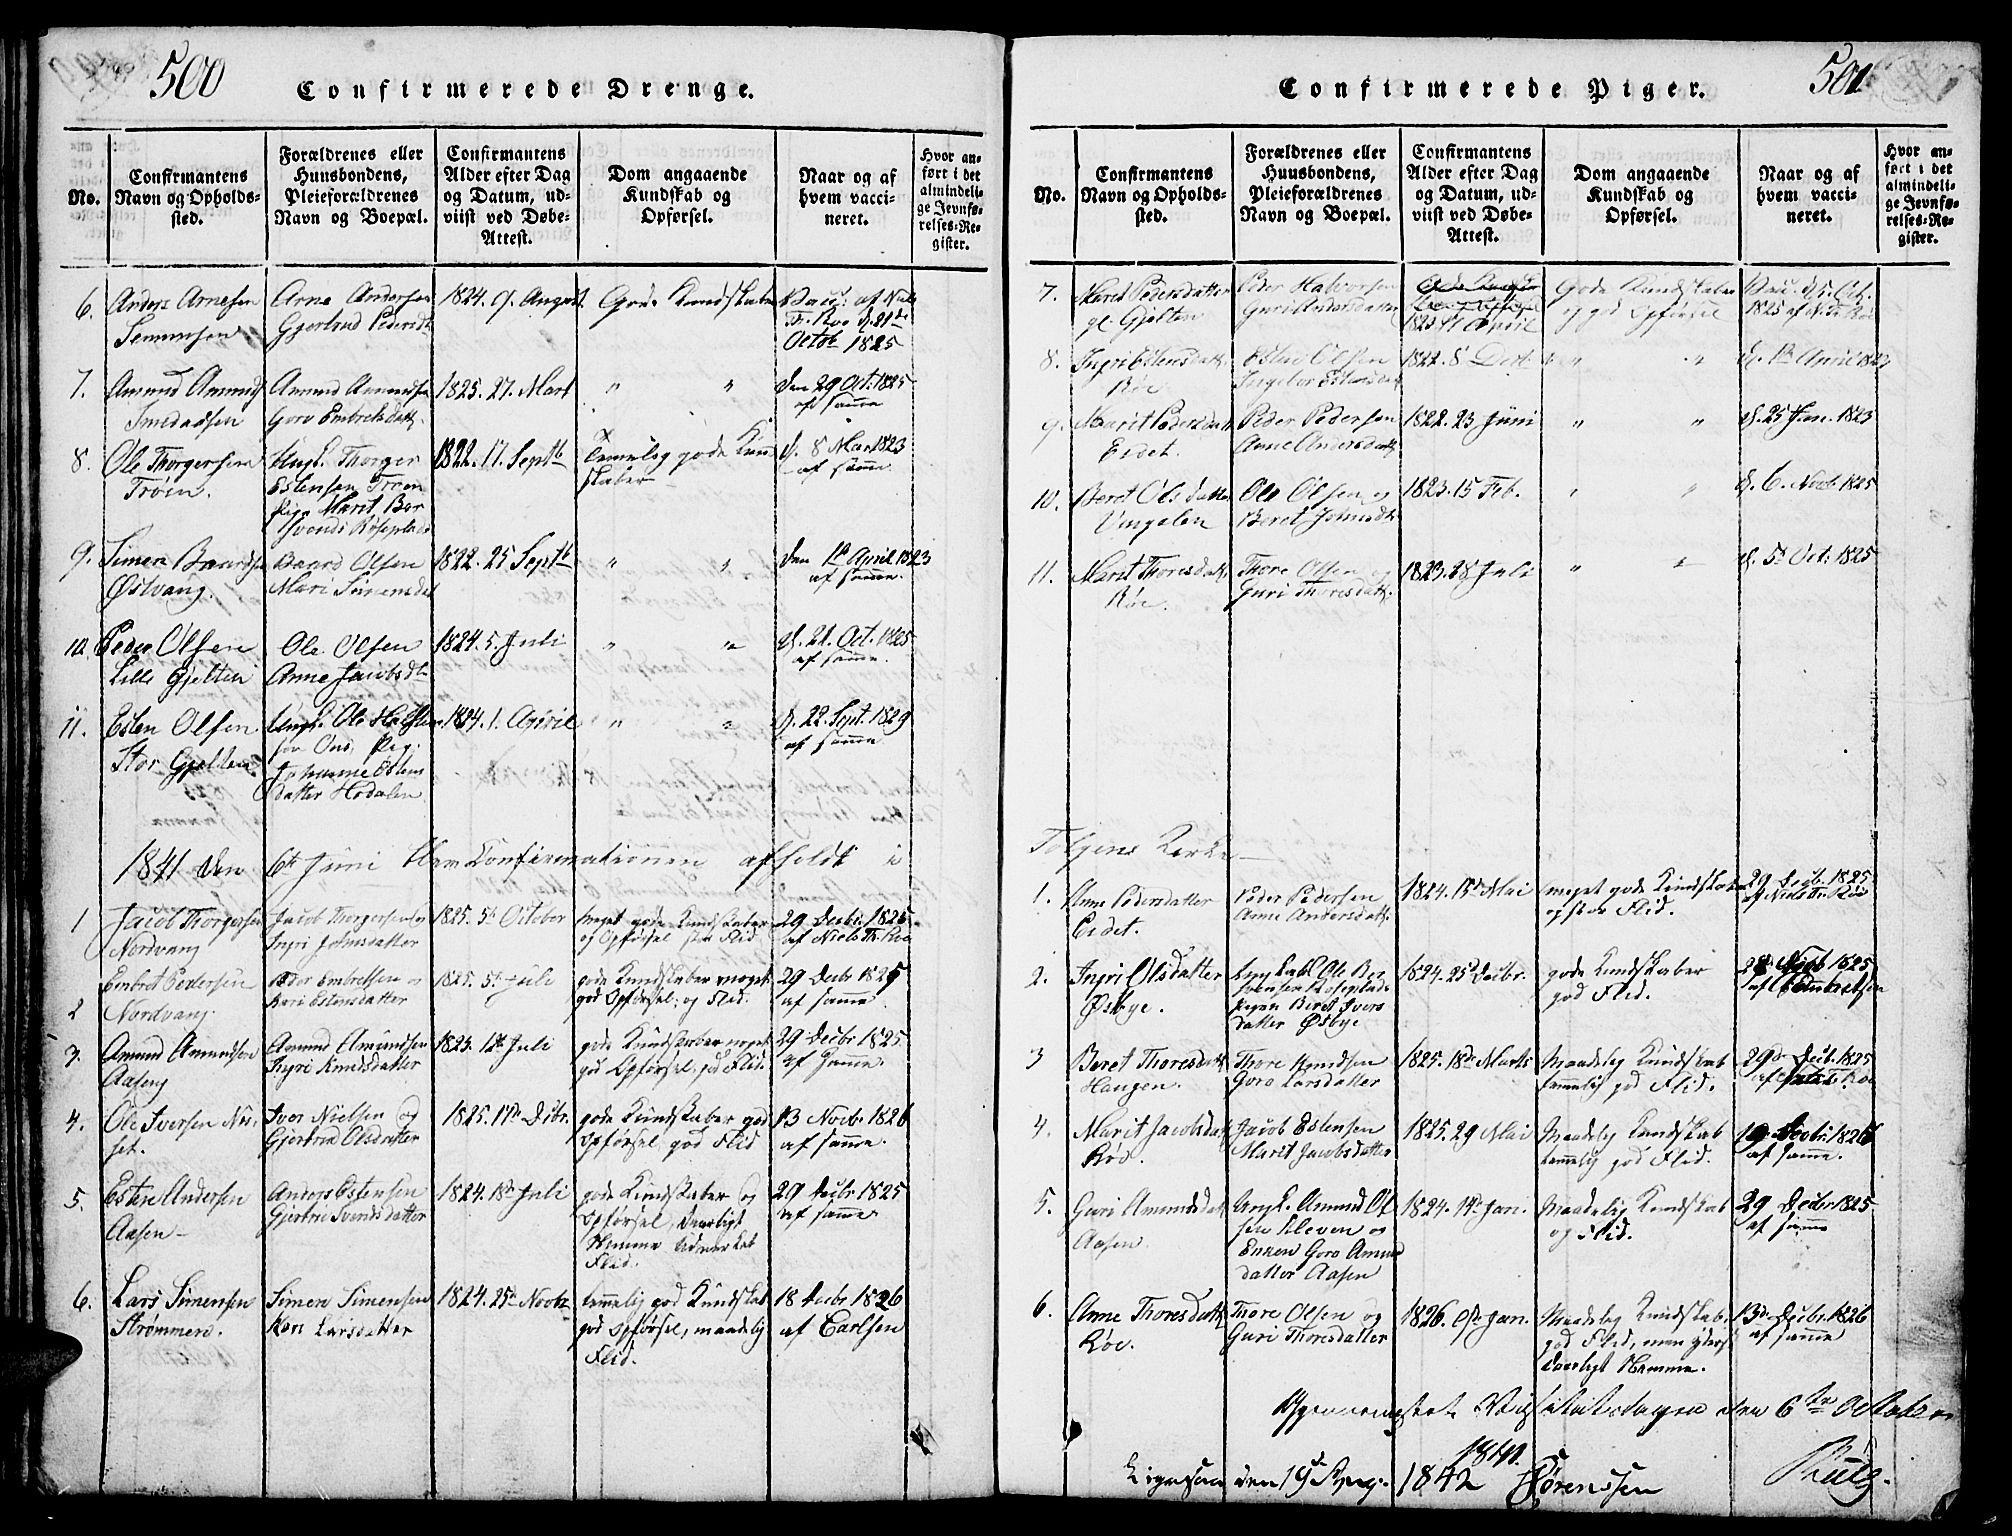 500
Confirmerede Drenge.
No.
Confirmantens
Navn og Opholds-
sted.
Forældrenes eller
Huusbondens,
Pleieforældrenes
Navn og Boepæl.
Confirmantens
Alder efter Dag
og Datum, ud-
viist ved Døbe-
Attest.
Dom angaaende
Kundskab og
Opførsel.
Naar og af
hvem vacci-
neret.
Hvor an-
ført i det
almindeli-
ge Jevnfø-
relses-Re-
gister.
6. Anders Arnesen
Arne Andersen
Gjertrud Pedersdt
1824. 9. August
Gode Kundskaber
Octob 1825
7. Amund Amunds
Amund Amundsen
Goro Embretsdatt.
1825. 27. Mart
" "
den 29 Oct: 1825
af samme
8. Ole Thorgersen
Trøen.
Ungk. Thorger
Estensen Trøen
Pige Marit Ber
1822. 17. Septb
Temmelig gode Kund
skaber
d. 8 Mar 1823
af samme
9. Simen Baardsen
Østvang.
Baard Olsen
Mari Simensdat
1822. 25 Septb
" "
den 1st April 1823
af samme.
10. Peder Olsen
Lille Gjelten
Ole Olsen
Anne Jacobsdt
1824. 5. Juli
" "
d. 21. Oct. 1825
af samme.
11. Esten Olsen
Stor Gjelten
Ungk. Ole
Johanne Estens
datter Hodalen
1824. 1. April
" "
d. 22. Sept. 1829
af samme
1841 den 6te Juni blev Confirmationen afholdt i
1 Jacob Thorgersen
Nordvang
Jacob Thorgersen og
Ingri Johnsdatter
1825. 5t October
meget gode Kundskaber
og Opførsel stor Flid.
29 Decbr. 1825
af Niels Th. Røe
2 Embret Pedersen
Nordvang.
Peder Embretsen og
Kari Estensdatter
1825. 5t Juli
gode Kundskaber meget
god Opførsel og Flid.
29 Decbr 1825
af samme
3. Amund Amundsen
Aaseng
Amund Amundsen
Ingri Knudsdatter
1823. 12t Juli
gode Kundskaber meget
god Opførsel, god Flid.
29 Decbr 1825
af samme.
4. Ole Iversen Næs-
set.
Iver Nielsen og
Gjertrud Olsdatter
1825. 17de Decbr.
gode Kundskaber god
Opførsel god Flid
13 Novbr 1826
af samme.
5. Esten Andersen
Aasen
Anders Estensen
Gjertrud Svendsdatter
1824. 18de Juli
gode Kundskaber og
Opførsel, daarligt
Nemme
Flid.
29 Decbr 1825
af samme
6. Lars Simensen
Strømmen.
Simen Simensen
Kari Larsdatter
1824. 25de Novbr
temmelig god Kundskab
god Opførsel, maadelig
Flid.
18 Decbr 1826
af Carlsen
501
Confirmerede Piger.
No.
Confirmantens
Navn og Opholds-
sted.
Forældrenes eller
Huusbondens,
Pleieforældrenes
Navn og Boepæl.
Confirmantens
Alder efter Dag
og Datum, ud-
viist ved Døbe-
Attest.
Dom angaaende
Kundskab og
Opførsel.
Naar og af
hvem vacci-
neret.
Hvor an-
ført i det
almindeli-
ge Jevnfø-
relses-Re-
gister.
7. Marit Pedersdatter
gl. Gjelten
Peder Halvorsen
Guri Andersdatter
April
Gode Kundskaber
og god Opførsel
8. Ingri Estensdatt.
Røe
Esten Olsen
Ingebor Estensdat
1822. 8 Dect
" "
d. 1st April 1823
9. Marit Pedersdatt
Eidet.
Peder Pedersen
Anne Andersdatt
1822. 23 Juni
" "
d. 25 Jan. 1823
10. Beret Olsdatter
Vingelen
Ole Olsen og
Beret Johnsdt
1823. 15 Feb.
" "
d. 6. Novb 1825
11. Marit Thoresdatt.
Røe.
Thore Olsen og
Guri Thoresdatt.
1823. 28 Juli
" "
d. 5t Oct: 1825
Tolgens Kirke
1. Anne Pedersdatter
Eidet.
Peder Pedersen
Anne Andersdatt.
1824. 15de Mai
meget gode Kundskaber
og stor Flid.
29 Decbr. 1825
af Niels Th. Røe
2. Ingri Olsdatter
Østbye.
Ungkarl Ole
Pigen Beret Ivers
datter Østbye
1824. 25de Decbr.
gode Kundskaber
god Flid.
1825
af Embretsen
3 Beret Thoresdatt
Haugen.
Thore
Goro Larsdatter
1825. 18de Marts
Maadelig Kundskab
temmelig god Flid.
29de Decbr. 1825
4. Marit Jacobsdatt
Røe.
Jacob Estensen
Marit Jacobsdatter
1825. 29 Mai
Maadelig Kundskab
temmelig god Flid.
1826
af samme.
5. Guri Amundsdatt
Aasen.
Ungk. Amund Ol
sen Kleven og
Enken Goro Amund
datter Aasen
1824. 14de Jan.
Maadelig Kundskab
og Flid.
29 Decbr 1825
af samme
6. Anne Thoresdatt
Røe.
Thore Olsen og
Guri Thoresdatter
1826. 9de Jan.
Maadelig Kundskab,
god Flid, men yderst
daarligt Nemme.
13de Decbr. 1826
af samme
Visitatsdagen den 6te October
1841.
Ligesaa den 19de Aug. 1842 Sørenssen